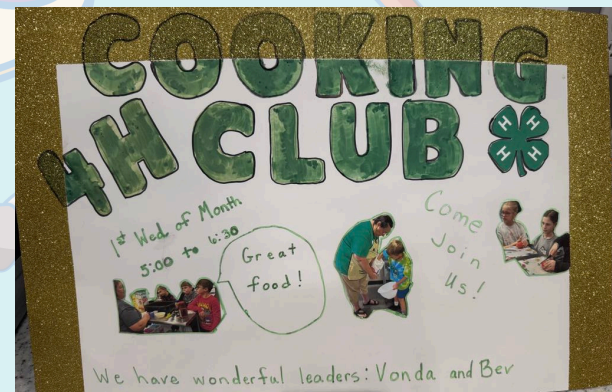 COOKING
4H CLUB
H H
H H
1st Wed of Month
5:00 to 6:30
Great
food!
Come
Join
Us!
We have wonderful leaders: Vonda and Bev